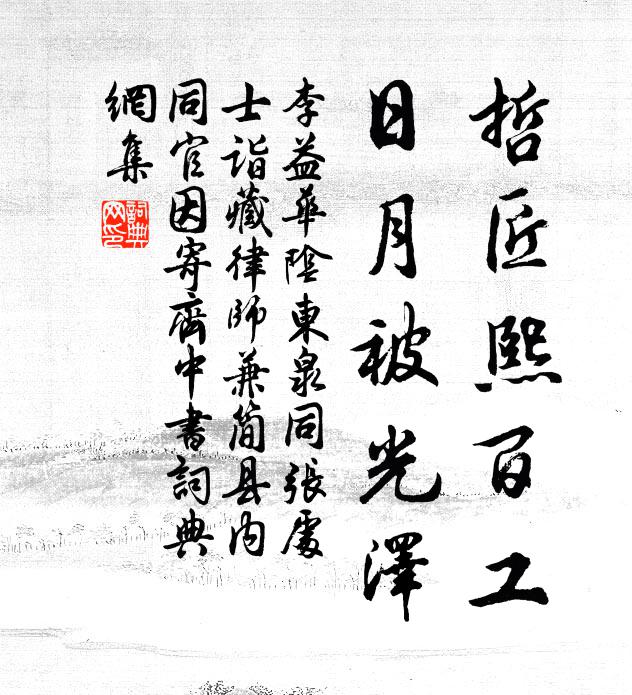 哲匠熙百工
日月被光澤
李益華陰東泉同張處
士詣藏律師兼簡县内
同官因寄齊中書詞典
網集
詞典
网印